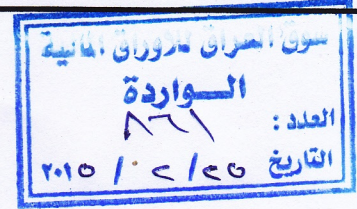 سوق العراق للاوراق المالية
الـــواردة
العدد : ٨٦١
التاريخ ٢٥ / ٢ / ٢٠١٥